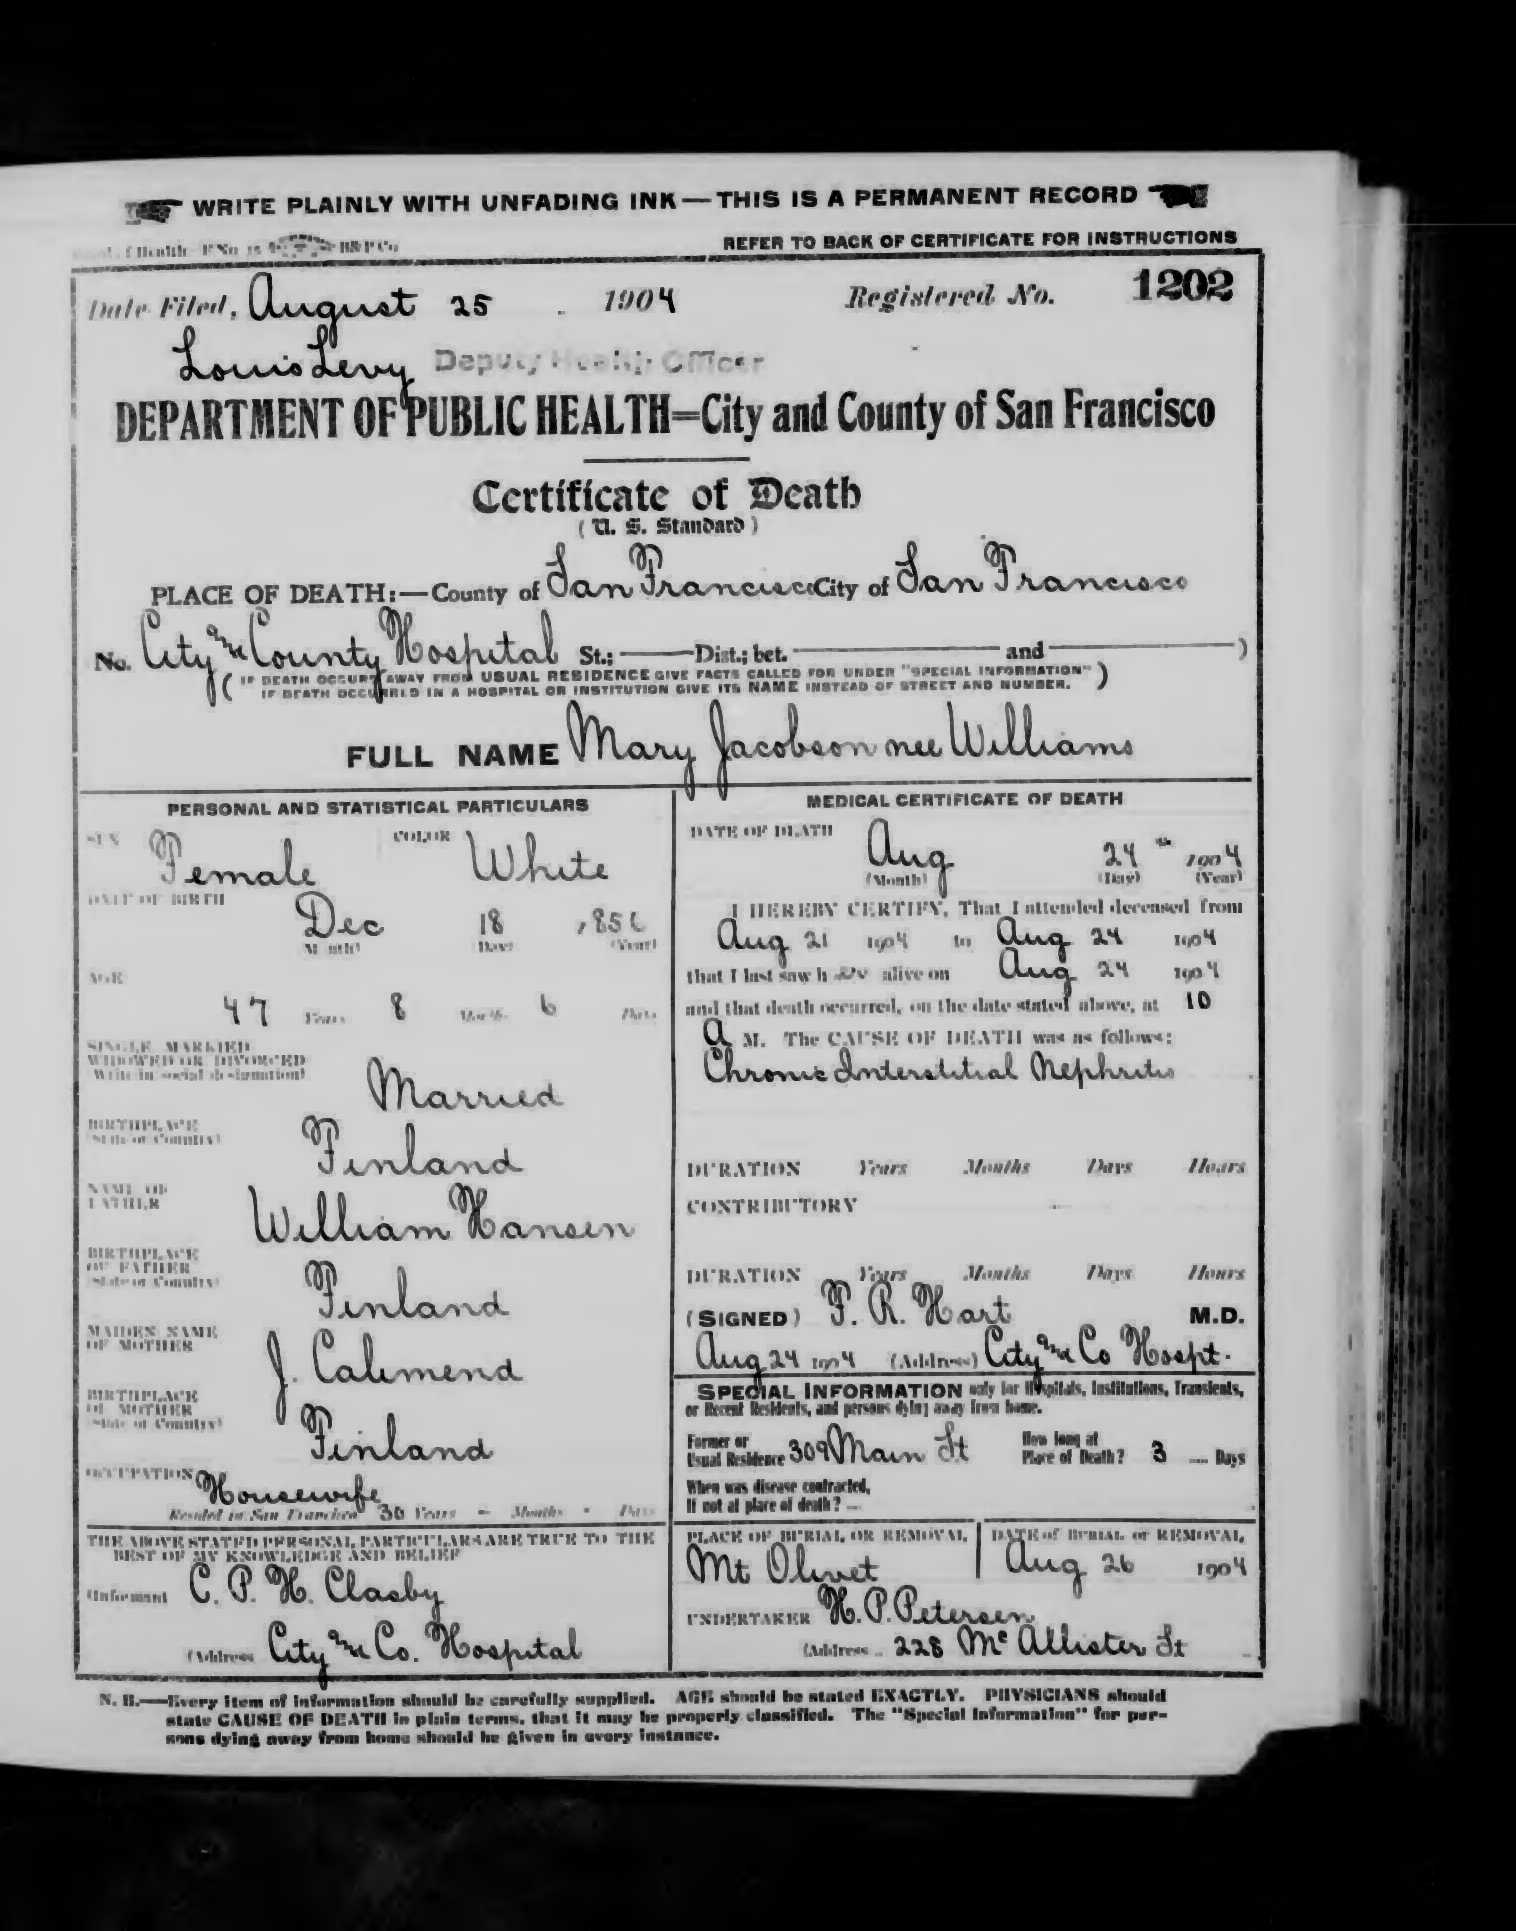 WRITE PLAINLY WITH UNFADING INK—THIS IS A PERMANENT RECORD
of Health F No 15 B&P Co
REFER TO BACK OF CERTIFICATE FOR INSTRUCTIONS
Date Filed, August 25 1904 Registered No. 1202
Louis Levy Deputy Health Officer
DEPARTMENT OF PUBLIC HEALTH=City and County of San Francisco
Certificate of Death
(U. S. Standard)
PLACE OF DEATH:—County of San Francisco City of San Francisco
No. City and County Hospital St.; ——Dist.; bet. —— and ——)
(IF DEATH OCCURS AWAY FROM USUAL RESIDENCE GIVE FACTS CALLED FOR UNDER "SPECIAL INFORMATION"
IF DEATH OCCURRED IN A HOSPITAL OR INSTITUTION GIVE ITS NAME INSTEAD OF STREET AND NUMBER.)
FULL NAME Mary Jacobson nee Williams
PERSONAL AND STATISTICAL PARTICULARS
SEX Female COLOR White
DATE OF BIRTH
Dec 18 185
(Month) (Day) (Year)
AGE
47 Years 8 Months 6 Days
SINGLE, MARRIED
WIDOWED OR DIVORCED
(Write in social designation)
Married
BIRTHPLACE
(State or Country)
Finland
NAME OF
FATHER
William Hansen
BIRTHPLACE
OF FATHER
(State or Country)
Finland
MAIDEN NAME
OF MOTHER
J. Calimend
BIRTHPLACE
OF MOTHER
(State or Country)
Finland
OCCUPATION Housewife
Resided in San Francisco 30 Years - Months - Days
THE ABOVE STATED PERSONAL PARTICULARS ARE TRUE TO THE
BEST OF MY KNOWLEDGE AND BELIEF
(Informant C. P. H. Clasby
(Address City and Co. Hospital
MEDICAL CERTIFICATE OF DEATH
DATE OF DEATH
Aug 24th 1904
(Month) (Day) (Year)
I HEREBY CERTIFY, That I attended deceased from
Aug 21 1904 to Aug 24 1904
that I last saw her alive on Aug 24 1904
and that death occurred, on the date stated above, at 10
A M. The CAUSE OF DEATH was as follows:
Chronic Interstitial Nephritis
DURATION Years Months Days Hours
CONTRIBUTORY
DURATION Years Months Days Hours
(SIGNED) F. R. Hart M.D.
Aug 24 1904 (Address) City and Co Hospt.
SPECIAL INFORMATION only for Hospitals, Institutions, Transients,
or Recent Residents, and persons dying away from home.
Former or
Usual Residence 309 Main St
How long at
Place of Death? 3 Days
When was disease contracted,
If not at place of death?
PLACE OF BURIAL OR REMOVAL
Mt Olivet
DATE of BURIAL or REMOVAL
Aug 26 1904
UNDERTAKER H. P. Petersen
(Address 228 McAllister St
N. B.—Every item of information should be carefully supplied. AGE should be stated EXACTLY. PHYSICIANS should
state CAUSE OF DEATH in plain terms, that it may be properly classified. The "Special Information" for per-
sons dying away from home should be given in every instance.